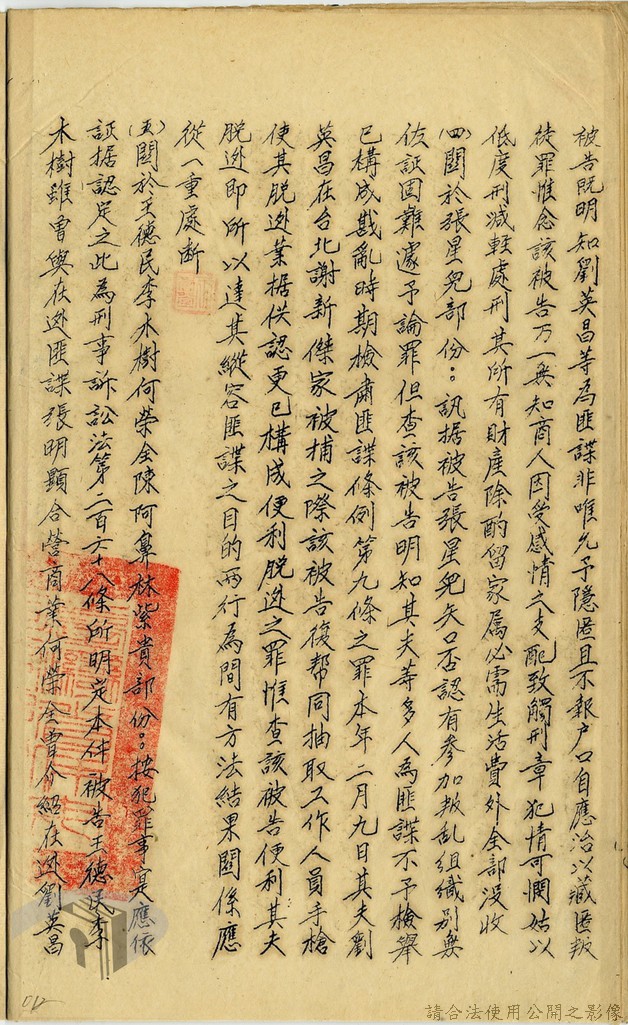 被告既明知劉英昌等為匪諜非唯允予隱匿且不報户口自應治以藏匿叛
徒罪惟念該被告乃一無知商人因受感情之支配致觸刑章犯情可憫姑以
低度刑減輕處刑其所有財產除酌留家屬必需生活費外全部没收
(四)關於張星兒部份：訊据被告張星兒矢口否認有參加叛乱組織別無
佐証固難遽予論罪但查該被告明知其夫等多人為匪諜不予檢舉
已構成戡亂時期檢肅匪諜條例第九條之罪本年二月九日其夫劉
英昌在台北謝新傑家被捕之際該被告復帮同抽取工作人員手槍
使其脱逃業据供認更已構成便利脱逃之罪惟查該被告便利其夫
脱逃即所以達其縱容匪諜之目的兩行為間有方法結果關係應
從一重處斷
(五)關於王德民李木樹何榮全陳阿鼻林紫貴部份：按犯罪事寔應依
証据認定之此為刑事訴訟法第二百六十八條所明定本件被告王德民李
木樹雖曾與在逃匪諜張明顯合營商業何榮全曾介紹在逃劉英昌
012
請合法使用公開之影像